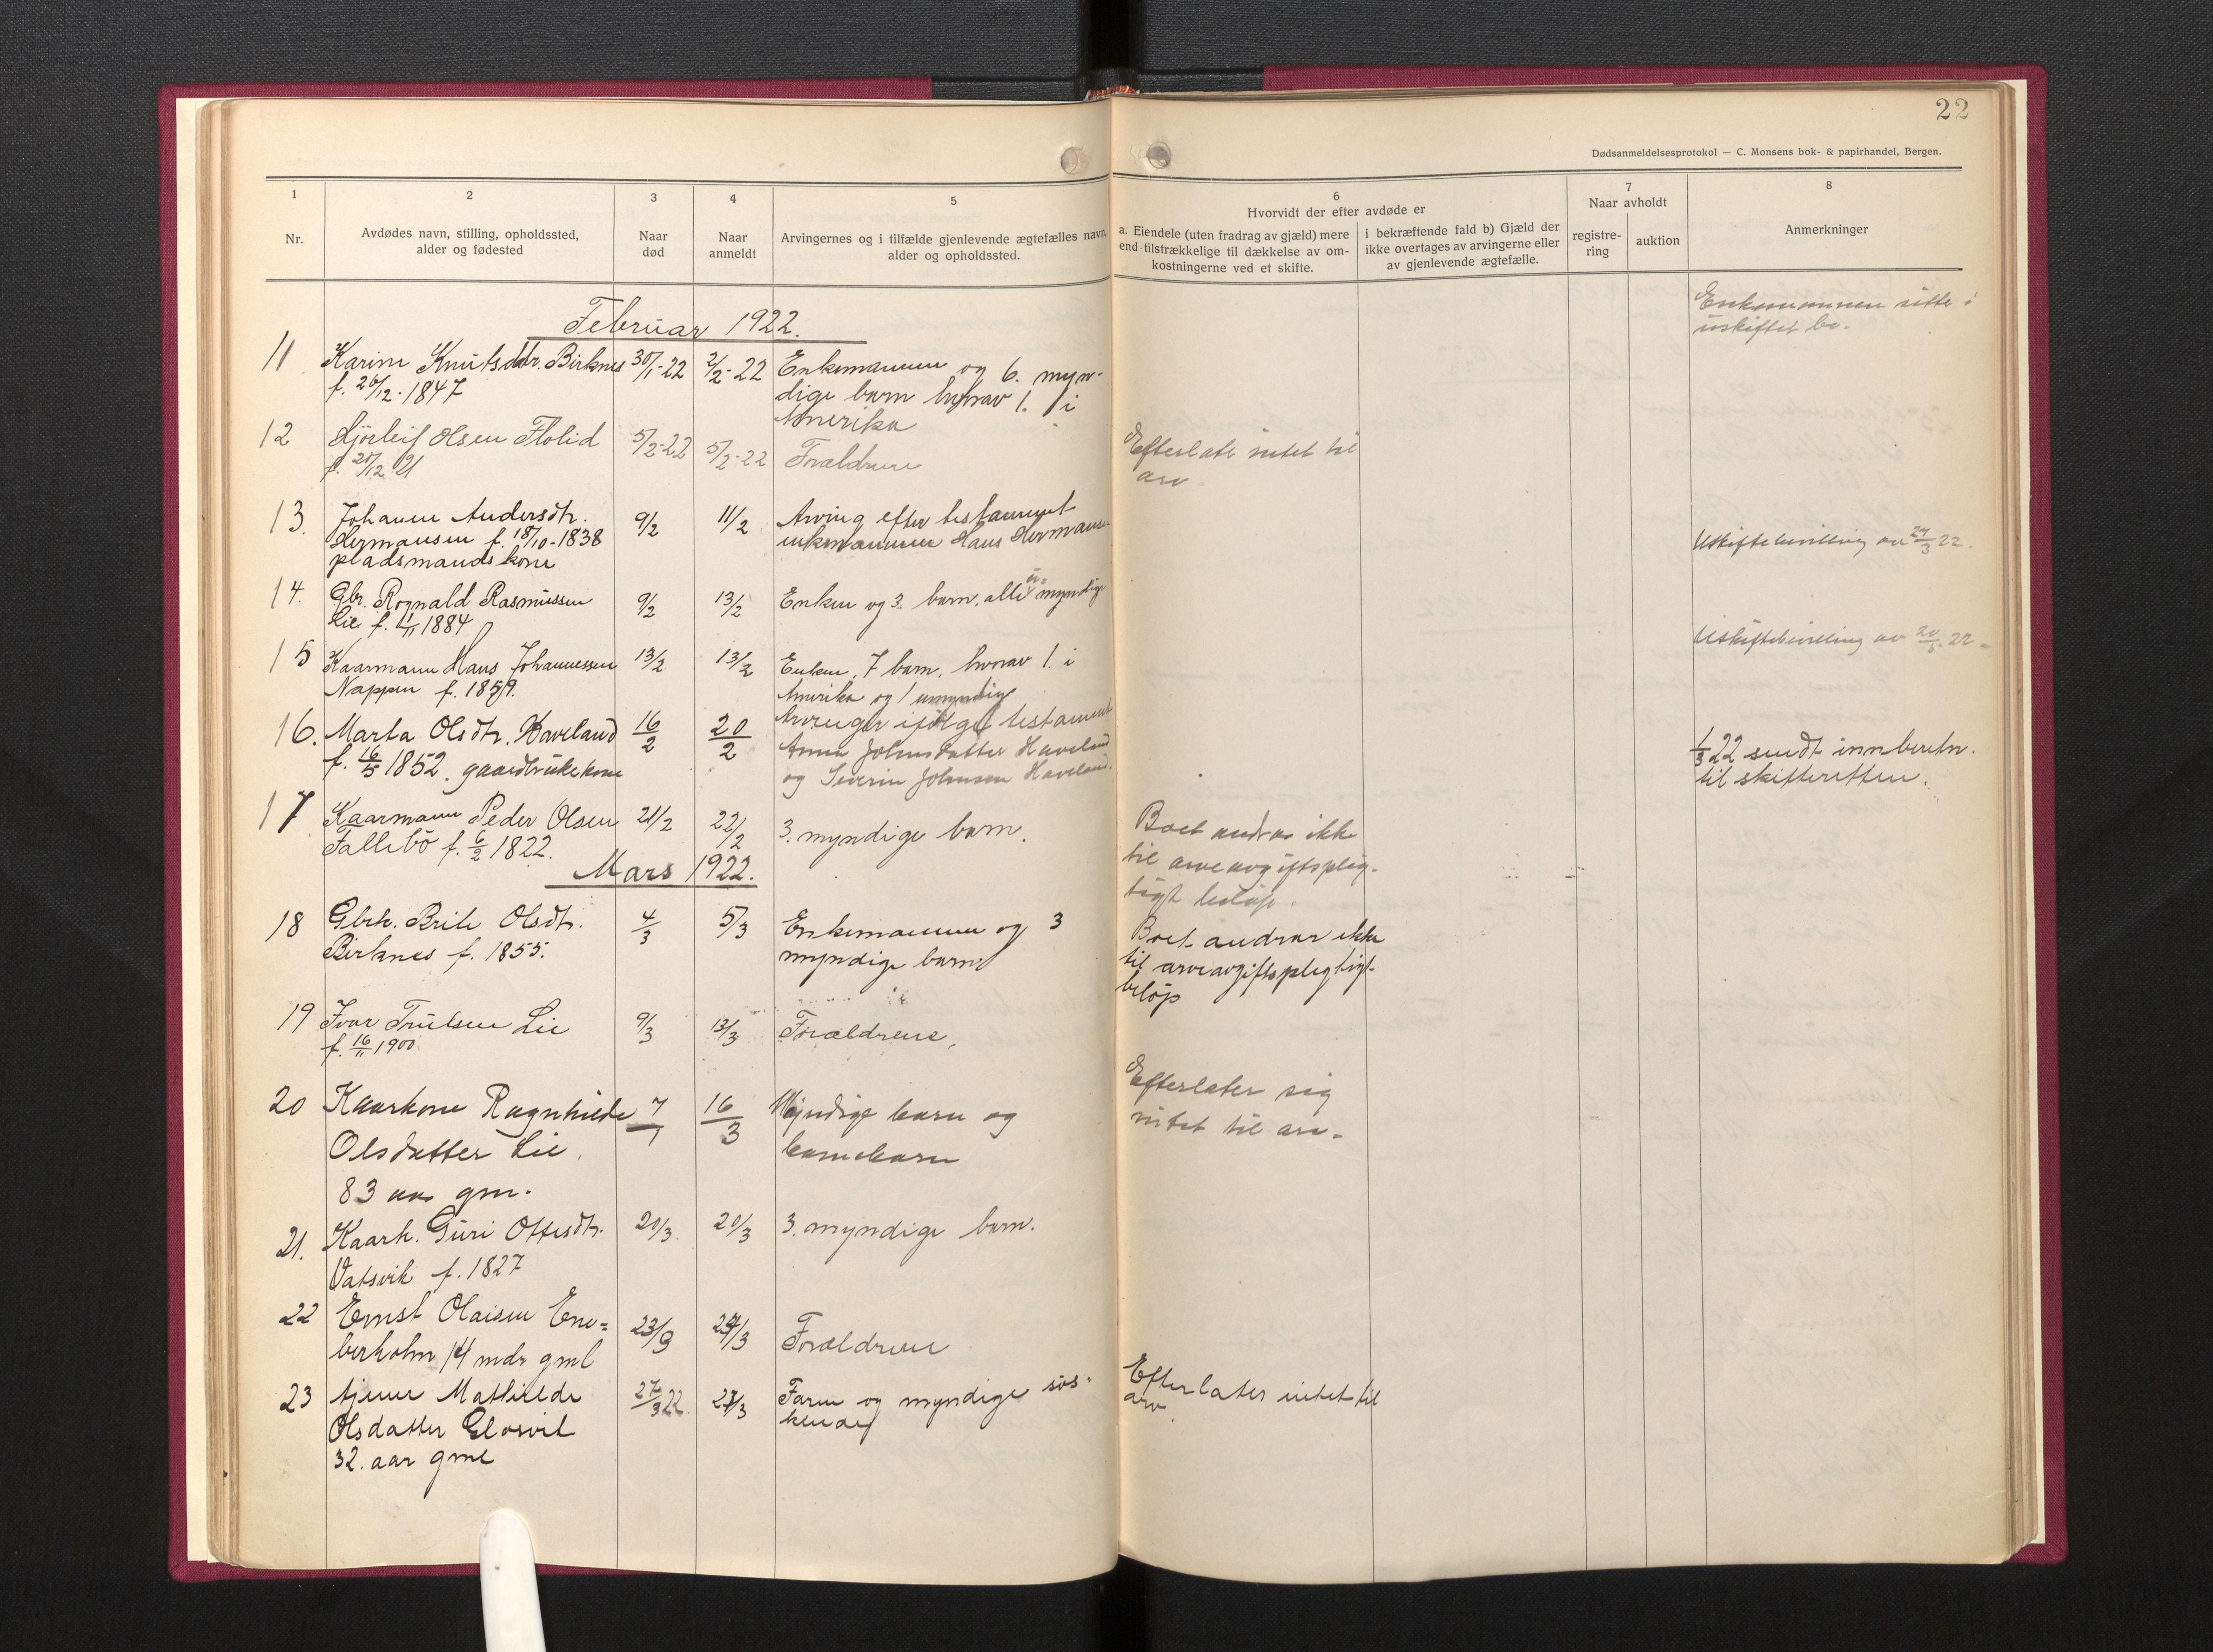 22
Dødsanmeldelsesprotokol — C. Monsens bok- & papirhandel, Bergen.
1
Nr.
2
Avdødes navn, stilling, opholdssted,
alder og fødested
3
Naar
død
4
Naar
anmeldt
5
Arvingernes og i tilfælde gjenlevende ægtefælles navn
alder og opholdssted.
6
Hvorvidt der efter avdøde er
a. Eiendele (uten fradrag av gjæld) mere
end tilstrækkelige til dækkelse av om-
kostningerne ved et skifte.
i bekræftende fald b) Gjæld der
ikke overtages av arvingerne eller
av gjenlevende ægtefælle.
7
Naar avholdt
registre-
ring
auktion
8
Anmerkninger
Februar 1922.
11 Karine Knutsdatr. Birknes 30/1-22 2/2-22 Enkemannen og 6. myn-
f. 26/12-1847 dige barn hvorav 1. i
Amerika
Enkemannen sitte i
uskiftet bo.
12 Olsen Flolid 5/2-22 5/2-22 Forældrene
f. 20/12 21
Efterlate intet til
arv
13. Johanne Andersdtr. 9/2 11/2 Arving efter testament
Hermansen f. 18/10-1838 enkemannen Hans Hermansen
pladsmandskone
Uskiftebevilling av 24/3 22.
14. Gbr. Rognald Rasmussen 9/2 13/2 Enken og 3. barn, alle u- myndige
Lie f. 1/11 1884
Uskiftebevilling av 20/3. 22
15 Kaarmann Hans Johannessen 13/2 13/2 Enken, 7 barn, hvorav 1. i
Nappen f. 1859. Amerika og 1 umyndig
16. Marta Olsdtr. Haveland 16/2 20/2 Arvinger ifölge testament
f. 16/5 1852. gaardbrukekone Anna Johnsdatter Haveland
og Severin Johnsen Haveland.
1/3 22 sendt innberetn.
til skifteretten.
17 Kaarmann Peder Olsen 21/2 22/2 3. myndige barn.
Fallebö f. 6/2 1822.
Boet andrar ikke
til arveavgiftsplig-
tigt beløp.
Mars 1922.
18 Gbrk. Brite Olsdtr. 4/3 5/3 Enkemannen og 3
Birknes f. 1855. myndige barn
Boet andrar ikke
til arveavgiftspligtigt
beløp
19 Ivar Trulsen Lie 9/3 13/3 Forældrene,
f. 16/11 1900
20 Kaarkone Ragnhilde 7/1 16/3 Myndige barn og
Olsdatter Lie, barnebarn
83 aar gm.
Efterlater sig
intet til arv.
21. Kaark. Guri Ottesdtr. 20/3 20/3 3. myndige barn.
Vatsvik f. 1827
22 Ernst Olaisen Ene= 23/3 24/3 Forældrene
berholm 14 mdr gml
23 tjener Mathilde 27/3 22. 27/3 Faren og myndige søs-
Olsdatter kende
32. aar gml
Efterlater intet til
arv